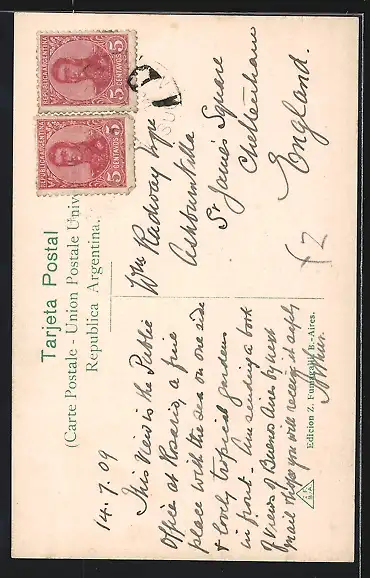 REPUBLICA ARGENTINA
5 CENTAVOS 5
REPUBLICA ARGENTINA
5 CENTAVOS 5
Tarjeta Postal
(Carte Postale - Union Postale Univ
Republica Argentina.
14.7.09
This view is the Public
Office at Rosario, a fine
place with the sea on one side
& lovely tropical gardens
in front. Am sending a book
of views of Buenos Aires by next
mail Hope you will receive it safely
Wm Radway Esqre
Ashburn Villa
St James Square
Cheltenham
England.
Edicion Z. Fumagalli B.-Aires.